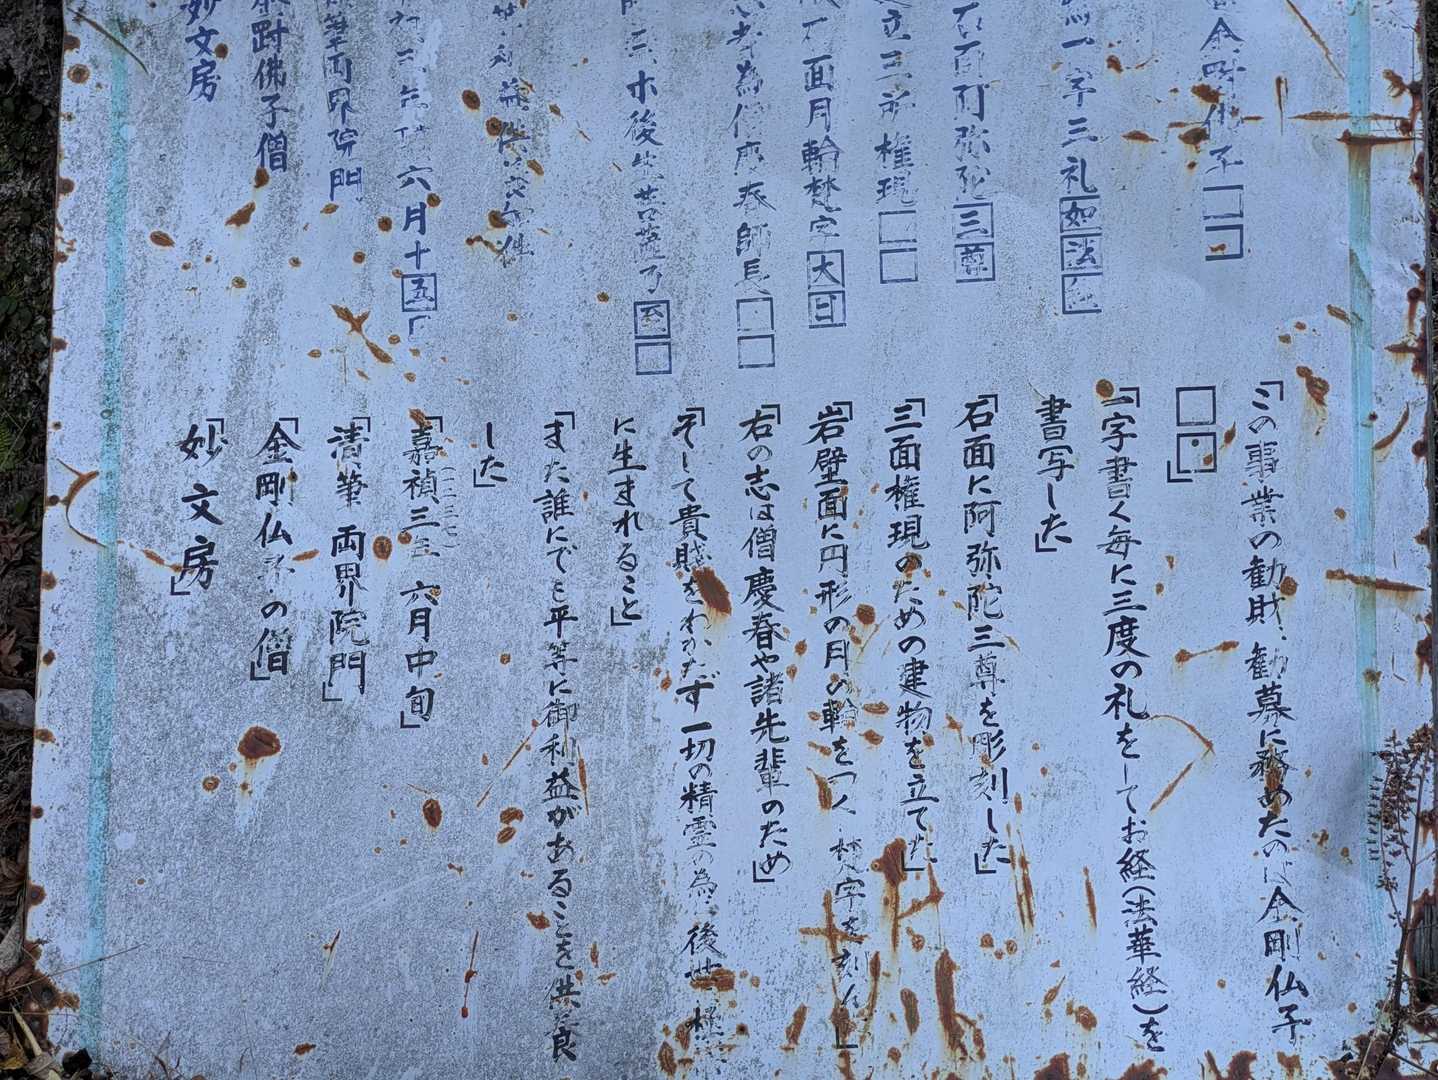 金剛佛子□□
一字三礼如法経
右面阿弥陀三尊
立三所権現□□
石面月輪梵字大日
為僧慶春師長□□
後生菩薩乃至□□
利益供
六月十五
筆両界院門
剛佛子僧
妙文房
「この事業の勧財、勧募に務めたのは金剛仏子
□□」
「一字書く毎に三度の礼をしてお経(法華経)を
書写した」
「石面に阿弥陀三尊を彫刻した」
「三面権現のための建物を立てた」
「岩壁面に円形の月の輪をつくり梵字を刻んだ」
「右の志は僧慶春や諸先輩のため」
「そして貴賎をわかたず一切の精霊の為、後世極楽
に生まれること」
「また誰にでも平等に御利益があることを供養
した」
「嘉禎三年(一二三七)六月中旬」
「清筆 両界院門」
「金剛仏子の僧」
「妙文房」